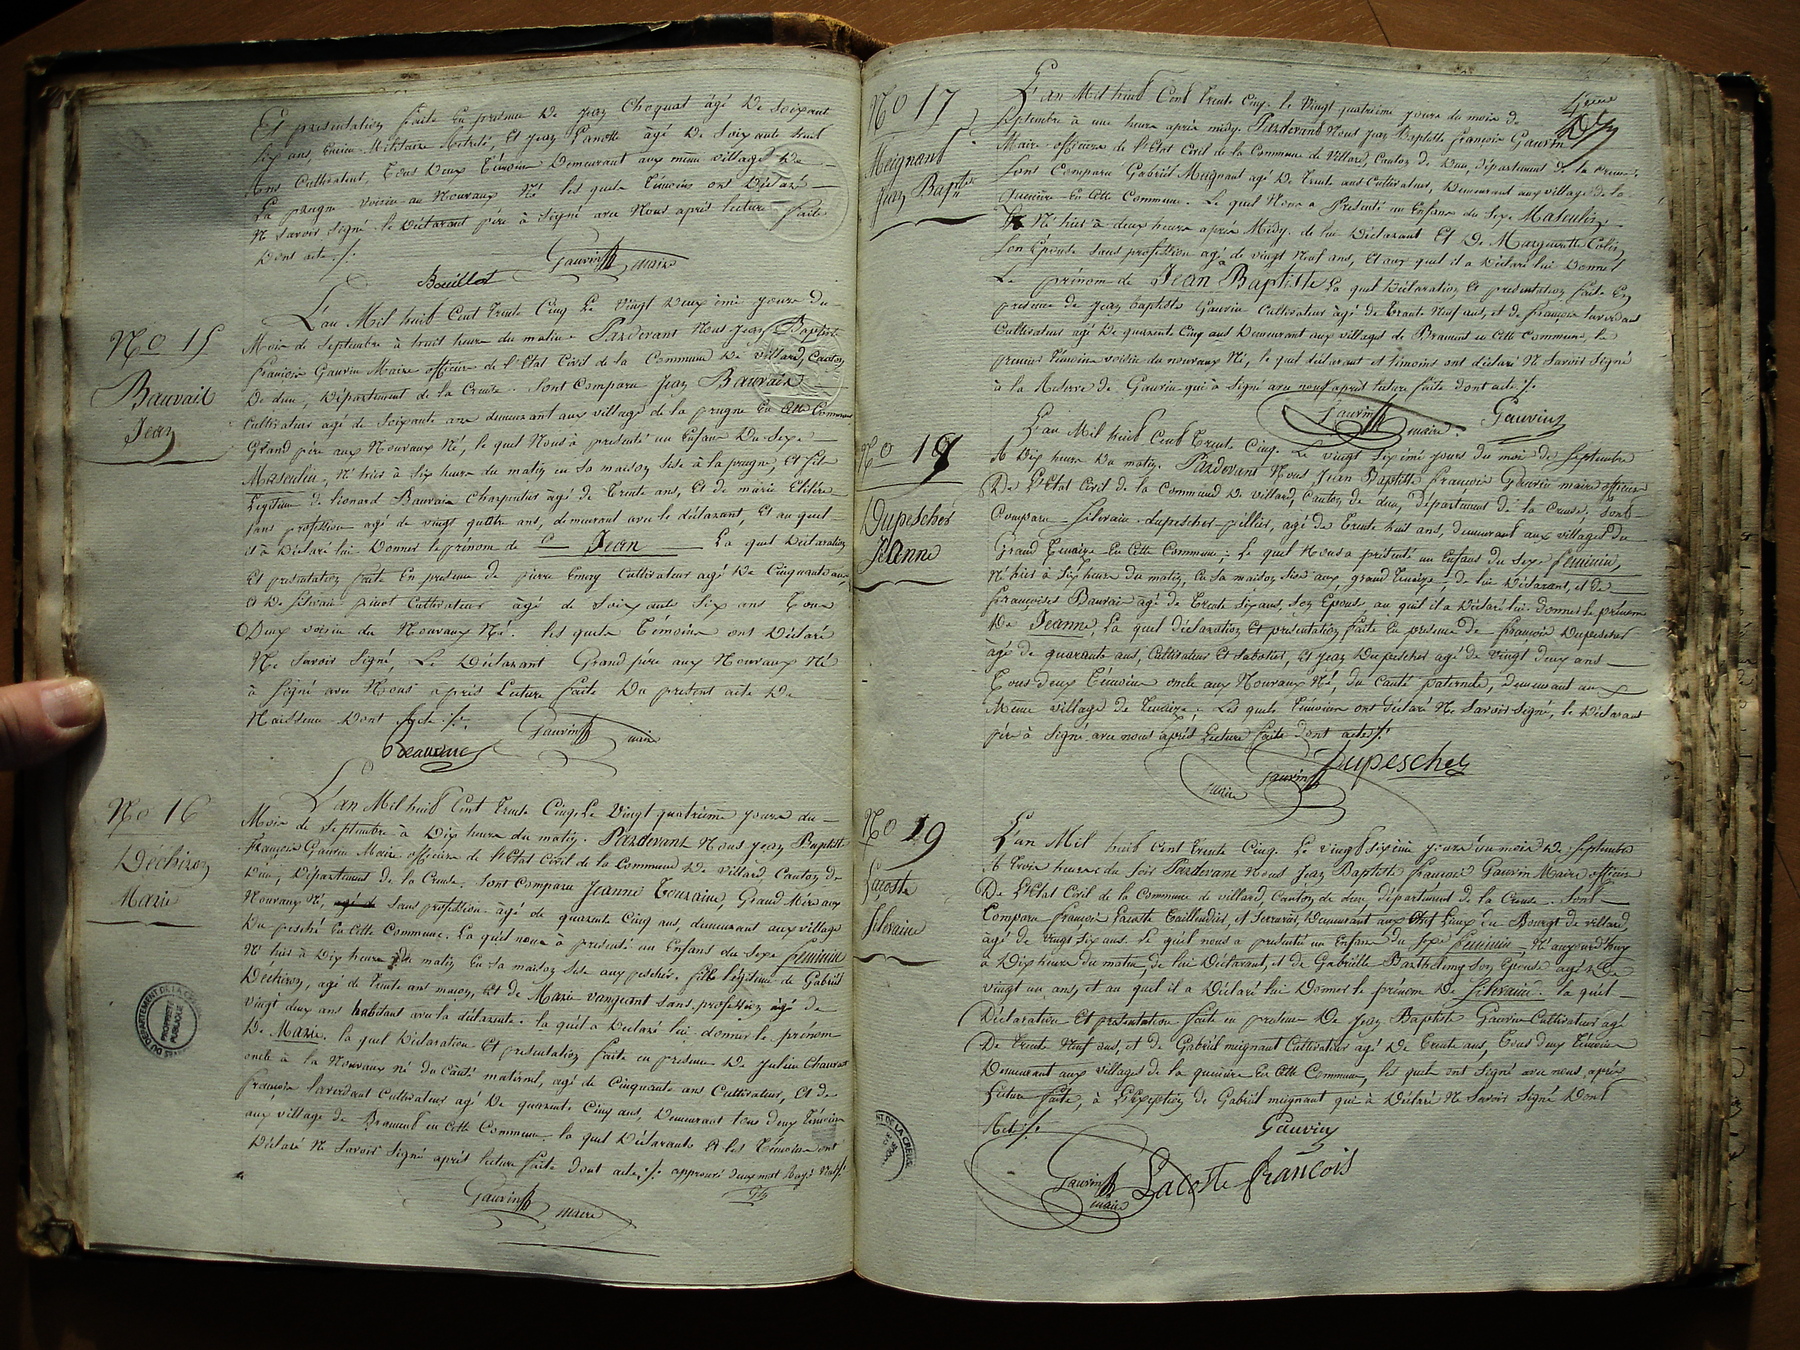 Et présentation faite En présence De Jean Choquat âgé De Soixante
Six ans, Ancien Militaire Retraité, Et Jean Lanotte âgé De Soixante huit
Ans Cultivateur, Tous Deux Témoins Demeurant aux même village De
La prugne voisin au Nouveaux Né les quels Témoins ont Déclaré
Ne Savoir Signé le Déclarant père à Signé avec Nous après lecture faite
Dont acte ./.
Bouillot Gauvin maire
No 15
Bauvait
Jean
L'an Mil huit Cent Trente Cinq Le Vingt Deux ème jours du
Mois de Septembre à huit heure du matin Pardevant Nous Jean Baptiste
françois Gauvin Maire officier de l'Etat Civil de la Commune De Villard, Canton
De dun, Département de la Creuse. Sont Comparu Jean Bauvais
Cultivateur agé de Soixante ans demeurant aux village de la prugne En Cette Commune
Grand père aux Nouveaux Né, le quel Nous à présenté un Enfant Du Sexe
Masculin, Né hier à Six heure du matin en Sa maison Sise à la prugne, Et fils
Légitime de Léonard Bauvais Charpentier âgé de Trente ans, Et de marie
Sans profession agé de vingt quattre ans, demeurant avec le déclarant, Et au quel
il à Déclaré lui Donner le prénom de Jean La quel Déclaration
Et présentation faite En présence de pierre Cultivateur agé De Cinquante ans,
Et De Silvain pinot Cultivateur âgé de Soixante Six ans Tous
Deux voisin du Nouveaux Né. les quels Témoins ont Déclaré
Ne Savoir Signé, Le Déclarant Grand père aux Nouveaux Né
à Signé avec Nous après Lecture faite Du présent acte De
Naissance Dont Acte ./.
Gauvin maire
No 16
Déchiron
Marie
L'an Mil huit Cent Trente Cinq Le Vingt quatrième jours du
Mois de Septembre à Dix heure du matin. Pardevant Nous Jean Baptiste
François Gauvin Maire officier de l'Etat Civil de la Commune De Villard Canton de
Dun, Département de la Creuse. Sont Comparu Jeanne Touraine, Grand Mère aux
Nouveaux Né, Sans profession âgé de quarente Cinq ans, demeurant aux village
Du peschė En Cette Commune. La quel nous à présenté un Enfant du Sexe féminin
Né hier à Dix heure du matin En Sa maison Sise aux pescher, fille légitime de Gabriel
Déchiron, agé de Trente ans maçon, Et de Marie vanquant Sans profession âgé de
vingt deux ans habitant avec la déclarente. la quel à Déclaré lui donner le prénom
De Marie. la quel Déclaration Et présentation faite en présence De Julien
oncle à la Nouveaux né du Côuté maternel, agé de Cinquante ans Cultivateur, Et de
françois Laverdant Cultivateur agé De quarente Cinq ans, Demeurant tous deux Témoins
aux village de Bramont en Cette Commune la quel Déclarante Et les Témoins ont
Déclaré Ne Savoir Signé après lecture faite dont acte ./. approuvé deux mot Rayé Nul ./.
Gauvin maire
DÉPARTEMENT DE LA CREUSE
PROPRIÉTÉ PUBLIQUE
No 17
Meignant
Jean Bapte
L'an Mil huit Cent Trente Cinq. le Vingt quatrième jours du mois de
Septembre à une heure après midy. Pardevant Nous Jean Baptiste françois Gauvin
Maire officier de l'Etat Civil de la Commune de Villard, Canton de Dun, département de la Creuse
Sont Comparu Gabriel Meignant agé De Trente ans Cultivateur, Demeurant aux village de la
En Cette Commune. Le quel Nous a Présenté un Enfant du Sexe Masculin
Né hier à deux heure après Midy. de lui Déclarant Et De Marguerite Colin
Son Epouse Sans profession agé de vingt Neuf ans, Et aux quel il a Déclaré lui Donner
Le prénom de Jean Baptiste La quel Déclaration Et présentation faite En
présence de Jean Baptiste Gauvin Cultivateur âgé de Trente Neuf ans, et de françois Laverdant
Cultivateur agé De quarente Cinq ans Demeurant aux villages de Bramont en Cette Commune, le
premier Témoin voisin du nouveaux Né, le quel déclarant et témoins ont déclaré Ne Savoir Signé
à la Reserve de Gauvin qui à Signé avec nous après lecture faite dont acte ./.
Gauvin maire. Gauvin
No 18
Dupescher
Jeanne
L'an Mil huit Cent Trente Cinq. Le vingt Sixième jours du mois de Septembre
à Dix heure Du matin. Pardevant Nous Jean Baptiste françois Gauvin maire officier
De l'Etat Civil de la Commune De Villard, Canton de dun, Département de la Creuse, Sont
Comparu Silvain dupescher agé de Trente huit ans, demeurant aux villages du
Grand En Cette Commune; Le quel Nous a présenté un Enfant du Sexe féminin
Né hier à Six heure du matin, En Sa maison Sise aux grand de lui Déclarant, et de
Françoise Bauvais âgé de Trente Six ans, Son Epouse, au quel il a Déclaré lui donner le prénom
De Jeanne, la quel déclaration Et présentation faite En présence de françois Dupescher
âgé de quarante ans, Cultivateur Et Sabotier, Et Jean Dupescher agé de Vingt deux ans
Tous deux Témoins oncle aux Nouveaux Né, du Cauté paternele, demeurant aux
Même village de Les quels Témoins ont déclaré Ne Savoir Signé, le Déclarant
père à Signé avec nous après Lecture faite Dont acte ./.
Gauvin Dupescher
maire
No 19
Lacoste
Silvaine
L'an Mil huit Cent Trente Cinq. Le vingt Sixième jours du mois De Septembre
à Trois heures du Soir Pardevant Nous Jean Baptiste françois Gauvin Maire officier
De l'Etat Civil de la Commune de Villard, Canton de dun, département de la Creuse. Sont
Comparu françois Lacoste Taillendier, et Serrurier, Demeurant aux Chef Lieux du Bourgt de Villard,
âgé de vingt Six ans. Le quel nous a présenté un Enfant du Sexe féminin Né aujourd'huy
à Dix heure du matin, de lui Déclarant, et de Gabrielle Barthelemy Son Epouse agé De
vingt un ans, et au quel il a Déclaré lui Donner le prénom De Silvaine. la quel
Déclaration Et présentation faite en présence De Jean Baptiste Gauvin Cultivateur agé
De Trente Neuf ans, et de Gabriel meignant Cultivateur agé De Trente ans, Tous deux Témoins
Demeurant aux villages de la En Cette Commune, les quels ont Signé avec nous après
Lecture faite, à L'Exception de Gabriel meignant qui à Déclaré Ne Savoir Signé Dont
Acte ./.
Gauvin
Gauvin Lacoste françois
maire